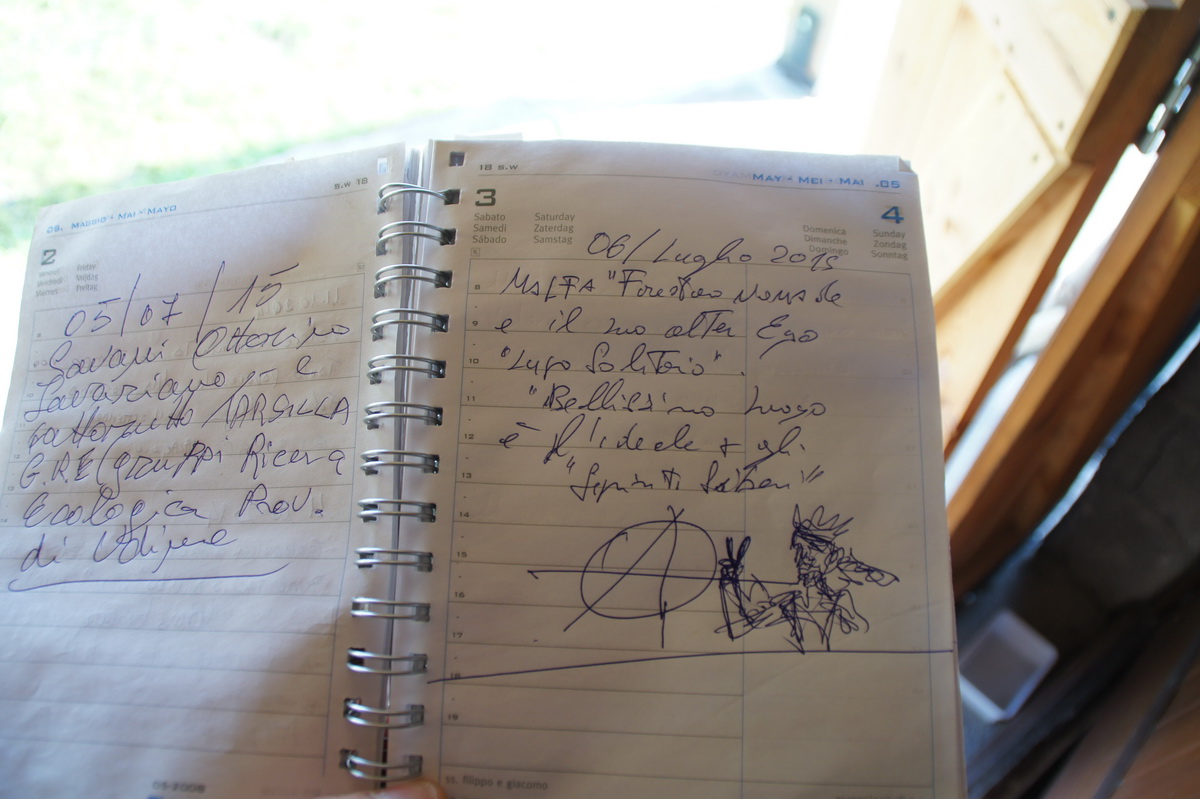 05. MAGGIO • MAI • MAYO
S.W 18
2
Venerdì Friday
Vendredi Vrijdag
Viernes Freitag
05/07/15
Savariano e
TARSILLA
G.R.E (gruppi Ricerca
Ecologica Prov.
di Udine
05-2008
18 S.W
MAY • MEI • MAI .05
3
Sabato Saturday
Samedi Zaterdag
Sábado Samstag
4
Domenica Sunday
Dimanche Zondag
Domingo Sonntag
06/Luglio 2015
8 MALFA "
9 e il suo alter Ego
10 "Lupo Solitario".
11 "Bellissimo luogo
12 è l'ideale x gli
13 "Spiriti liberi"
14
15
16
17
18
19
ss. filippo e giacomo